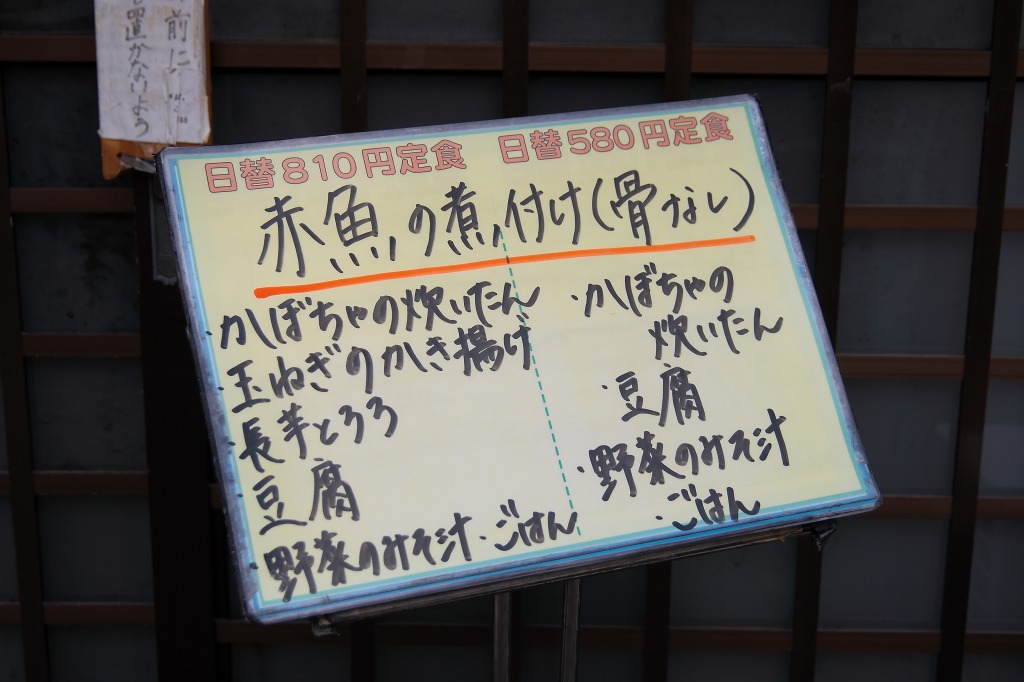 前に
置かないよう
日替810円定食 日替580円定食
赤魚の煮付け(骨なし)
・かぼちゃの炊いたん
・玉ねぎのかき揚げ
・長芋とろろ
・豆腐
・野菜のみそ汁・ごはん
・かぼちゃの
炊いたん
・豆腐
・野菜のみそ汁
・ごはん